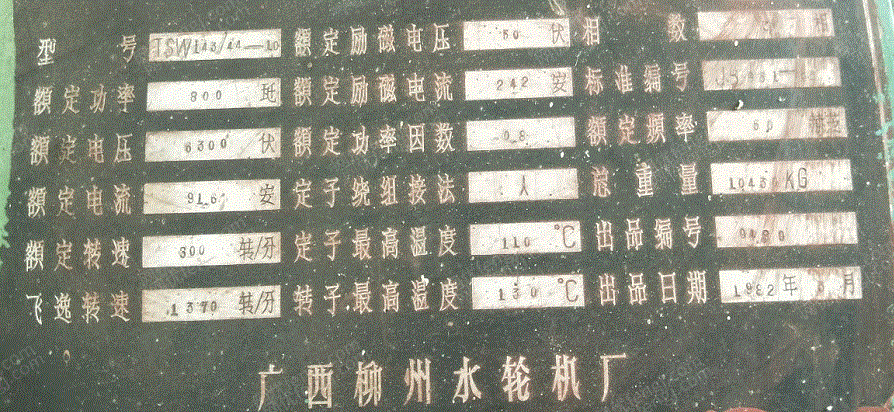 型号 TSW143/44-10 额定励磁电压 50 伏 相数 相
额定功率 800 瓩 额定励磁电流 242 安 标准编号
额定电压 6300 伏 额定功率因数 0.8 额定频率 50 赫芝
额定电流 91.6 安 定子绕组接法 人 总重量 KG
额定转速 600 转/分 定子最高温度 110 ℃ 出品编号
飞逸转速 1370 转/分 转子最高温度 130 ℃ 出品日期 1982年 月
广西柳州水轮机厂